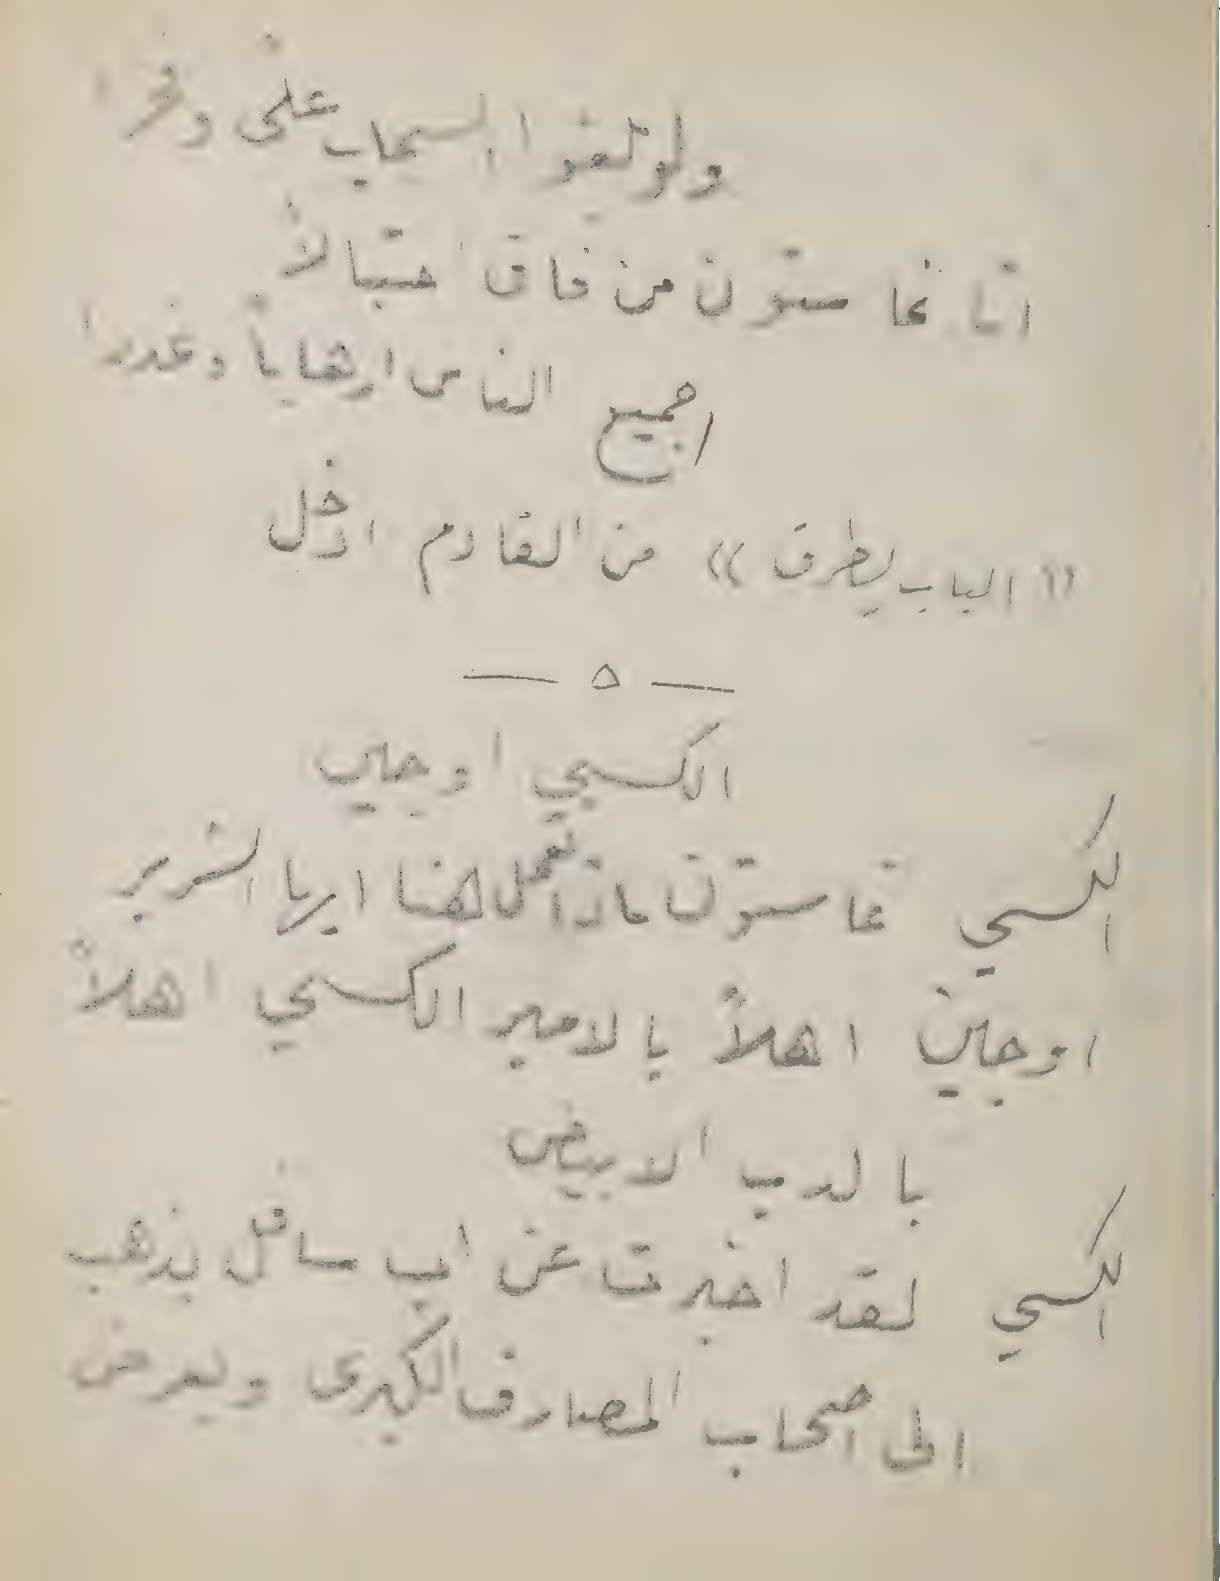 ولو بلغوا السحاب على وفخرا
انا غاستون من فاق احتيالاً
جميع الناس ارهاباً وغدرا
« الباب يطرق » من القادم ادخل
— ٥ —
الكسي اوجين
الكسي غاستون ماذا تعمل هنا ايها الشرير
اوجين اهلاً بالامير الكسي اهلاً
بالدب الابيض
الكسي لقد اخبرت عن اب سافل يذهب
الى اصحاب المصارف الكبرى ويعرض